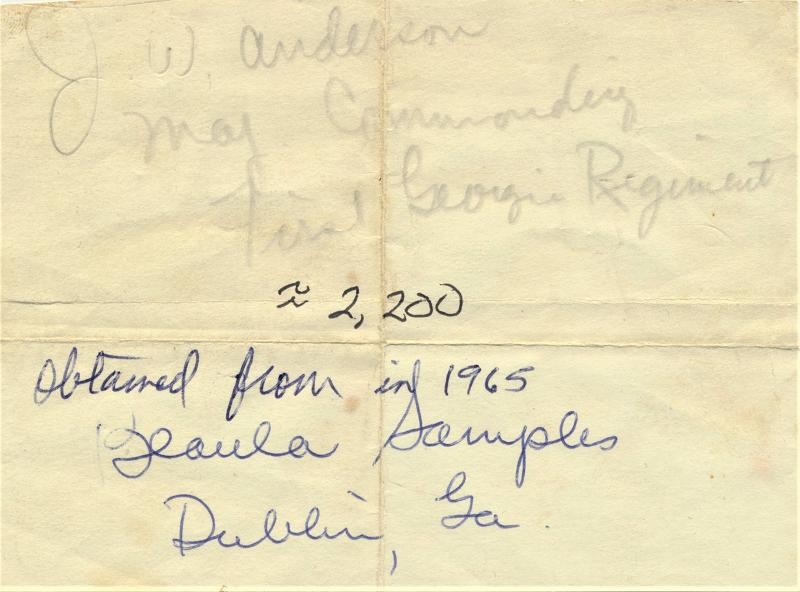 J. W. Anderson
Maj Commanding
First Georgia Regiment
≈ 2,200
Obtained from in 1965
Samples
Dublin, Ga.